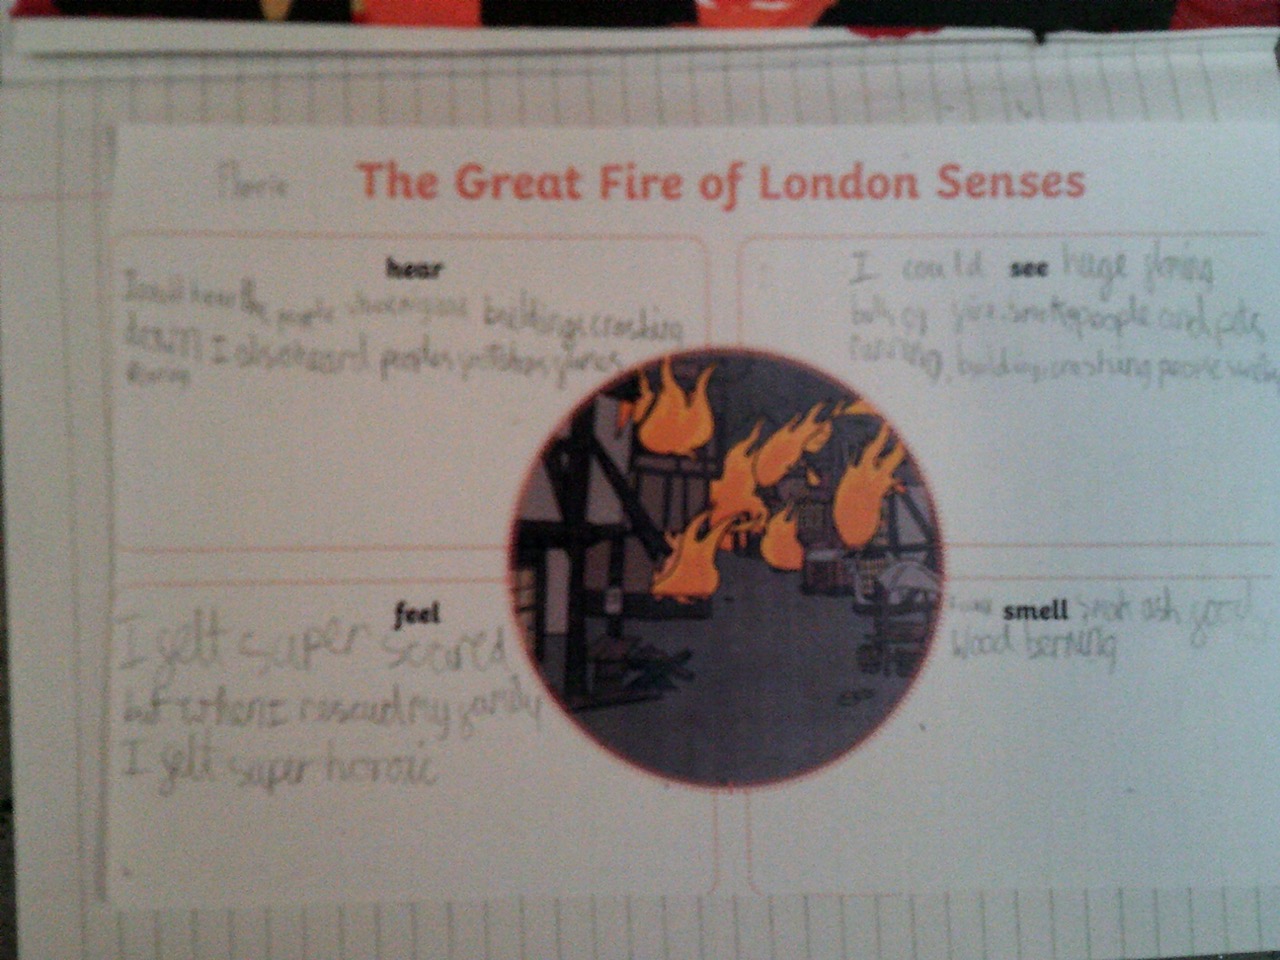 Florie The Great Fire of London Senses
hear
I could hear the people buildings crashing
down I also heard peoples
I could see huge
balls of fire smoke people and pets
running, buildings crashing people
feel
I felt super scared
but when I rescued my family
I felt super heroic
smell
ash
Wood berning